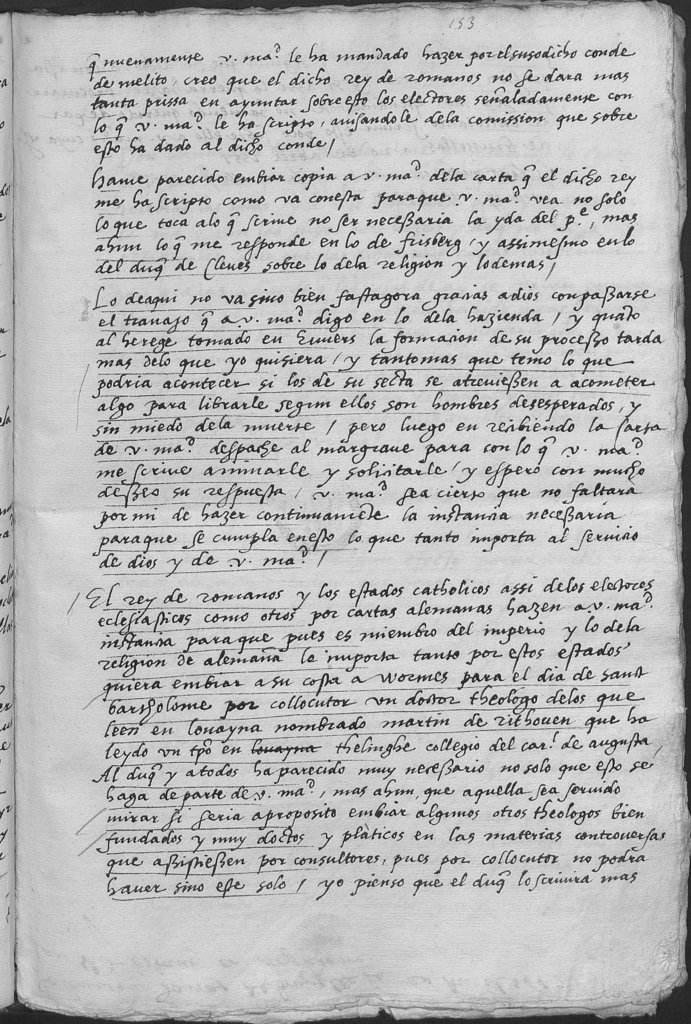 153
q̄ nuevamente v. mad. le ha mandado hazer por el susodicho conde
de melito, creo que el dicho rey de romanos no se dara mas
tanta prissa en ayuntar sobresto los electores señaladamente con
lo q̄ v. mad. le ha scripto, avisandole dela comission que sobre
esto ha dado al dicho conde /
hame parecido embiar copia a v. mad. dela carta q̄ el dicho rey
me ha scripto como va conesta paraque v. mad. vea no solo
lo que toca alo q̄ scrive no ser necessaria la yda del pe, mas
ahun lo q̄ me responde en lo de frisberg / y assimesmo enlo
del duq̄ de Cleves sobre lo dela religion y lodemas /
Lo deaqui no va sino bien fastagora gracias adios con passarse
el travajo q̄ a v. mad. digo en lo dela hazienda / y quāto
al herege tomado en la formacion de su processo tarda
mas delo que yo quisiera / y tantomas que temo lo que
podria acontecer si los de su secta se atreviessen a acometer
algo para librarle segun ellos son hombres desesperados, y
sin miedo dela muerte / pero luego en recibiendo la carta
de v. mad. despache al margrave para con lo q̄ v. mad.
me scrive animarle y solicitarle / y espero con mucho
desseo su respuesta / v. mad. sea cierto que no faltara
por mi de hazer continuamēte la instancia necessaria
paraque se cumpla enesto lo que tanto importa al servicio
de dios y de v. mad. /
/ El rey de romanos y los estados catholicos assi delos electores
eclesiasticos como otros por cartas alemanas hazen a v. mad.
instancia paraque pues es miembro del imperio y lo dela
religion de alemaña le importa tanto por estos estados
quiera embiar a su costa a wormes para el dia de sanct
bartholome por collocutor un doctor theologo delos que
leen en lovayna nombrado martin de rithoven que ha
leydo un tpō en lovayna thelinghe collegio del carl. de augusta /
Al duq̄ y atodos ha parecido muy necessario no solo que esto se
haga de parte de v. mad., mas ahun, que aquella sea servido
mirar si seria aproposito embiar algunos otros theologos bien
fundados y muy doctos y platicos en las materias controversas
que assistiessen por consultores, pues por collocutor no podra
haver sino este solo / yo pienso que el duq̄ lo scrivira mas